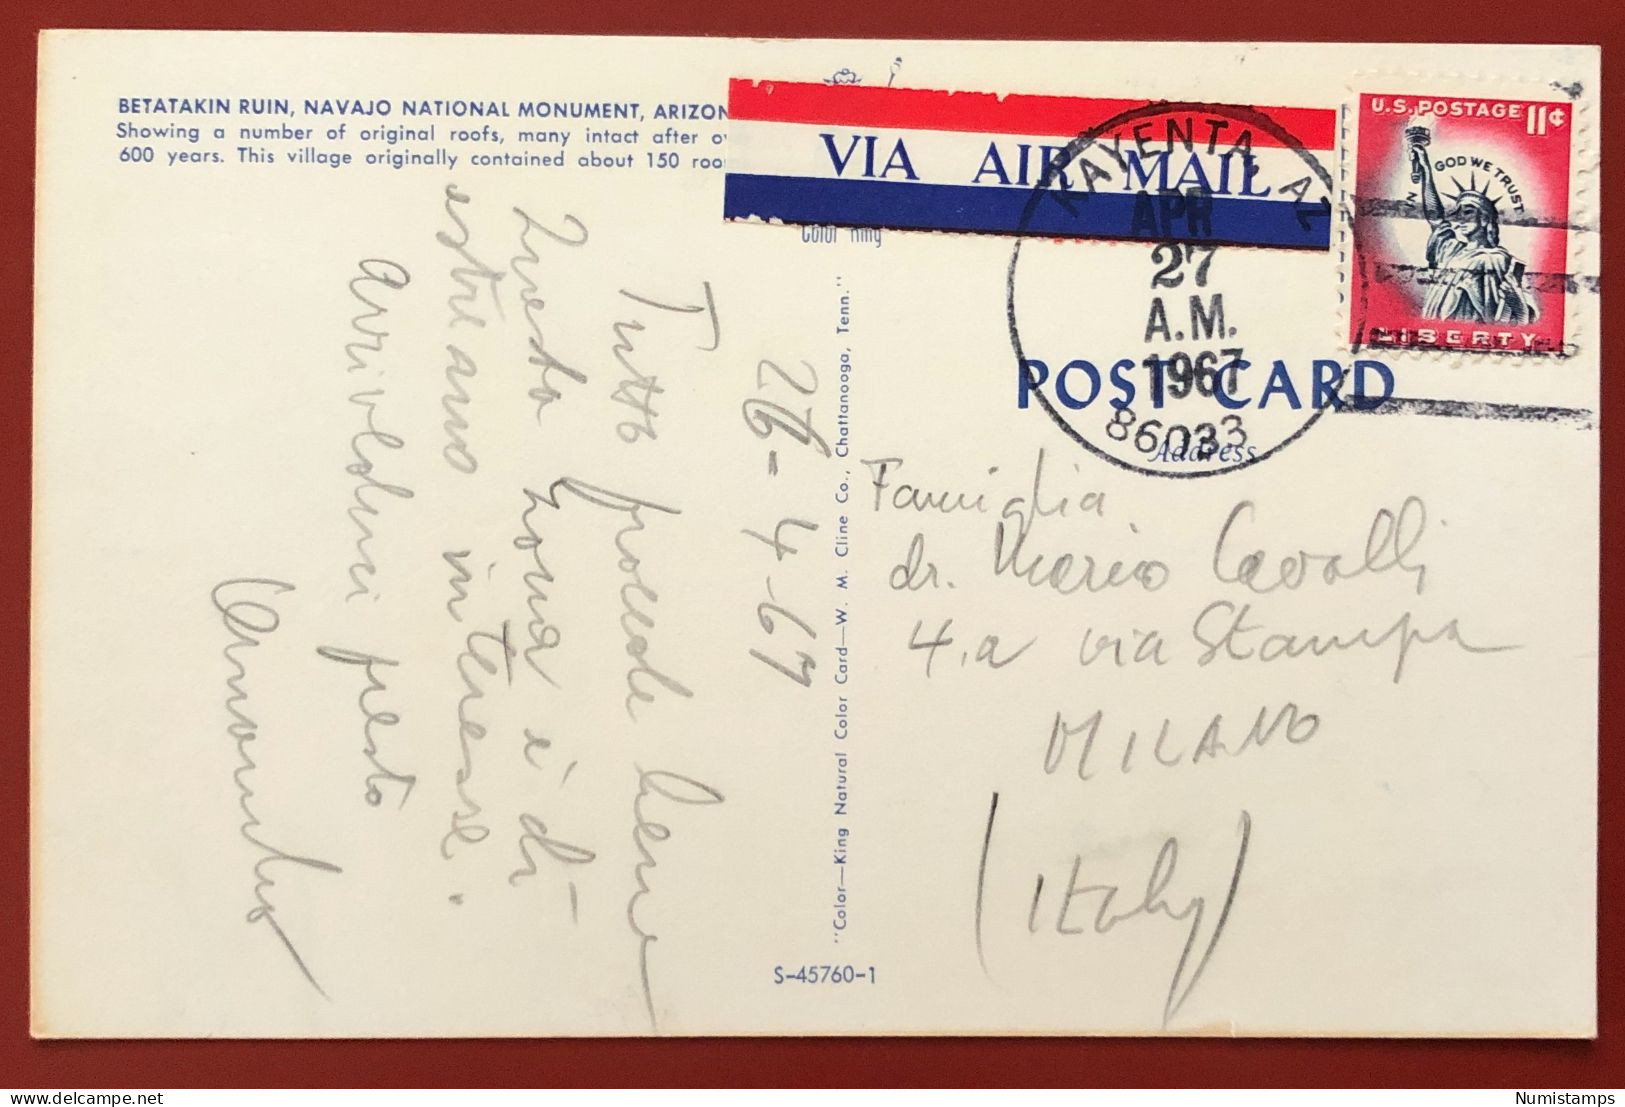 BETATAKIN RUIN, NAVAJO NATIONAL MONUMENT, ARIZON
Showing a number of original roofs, many intact after o
600 years. This village originally contained about 150 roo
VIA AIR MAIL
KAYENTA, AZ
APR
27
A.M.
1967
86033
U.S. POSTAGE 11¢
IN GOD WE TRUST
LIBERTY
Color King
POST CARD
Address
26-4-67
Tutto procede bene
Questa zona è di
estremo interesse.
Arrivederci presto
"Color—King Natural Color Card—W. M. Cline Co., Chattanooga, Tenn."
S-45760-1
Famiglia
dr. Mario Cavalli
4.a via Stampa
MILANO
(Italy)
Numistamps
delcampe.net